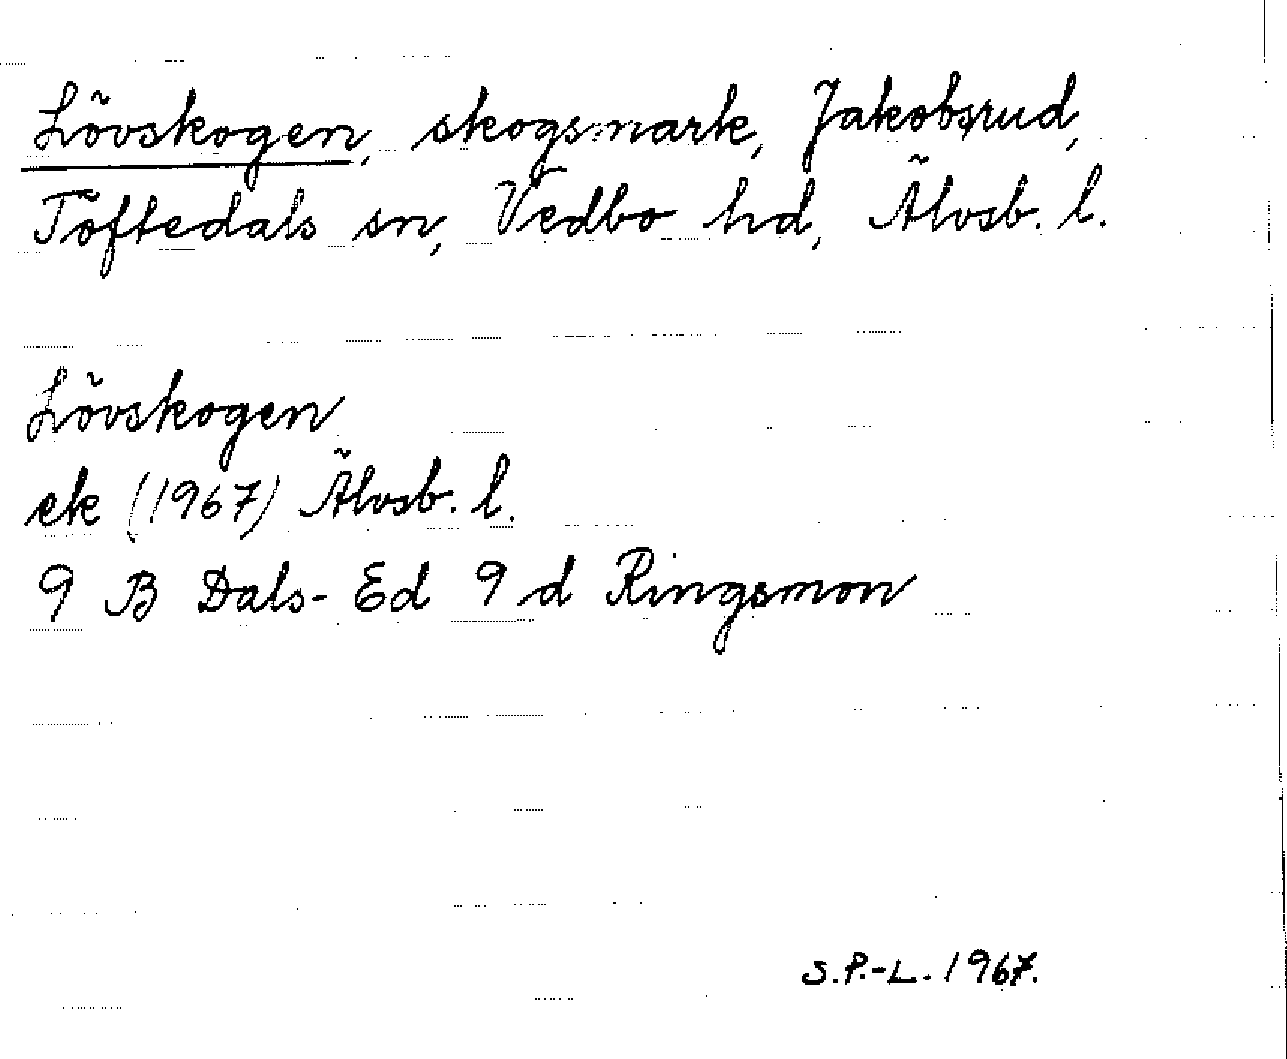 Lövskogen, skogsmark, Jakobsrud,
Töftedals sn, Vedbo hd, Älvsb. l.
Lövskogen
ek (1967) Älvsb. l.
9 B Dals-Ed 9 d Ringsmon
S.P.-L. 1967.